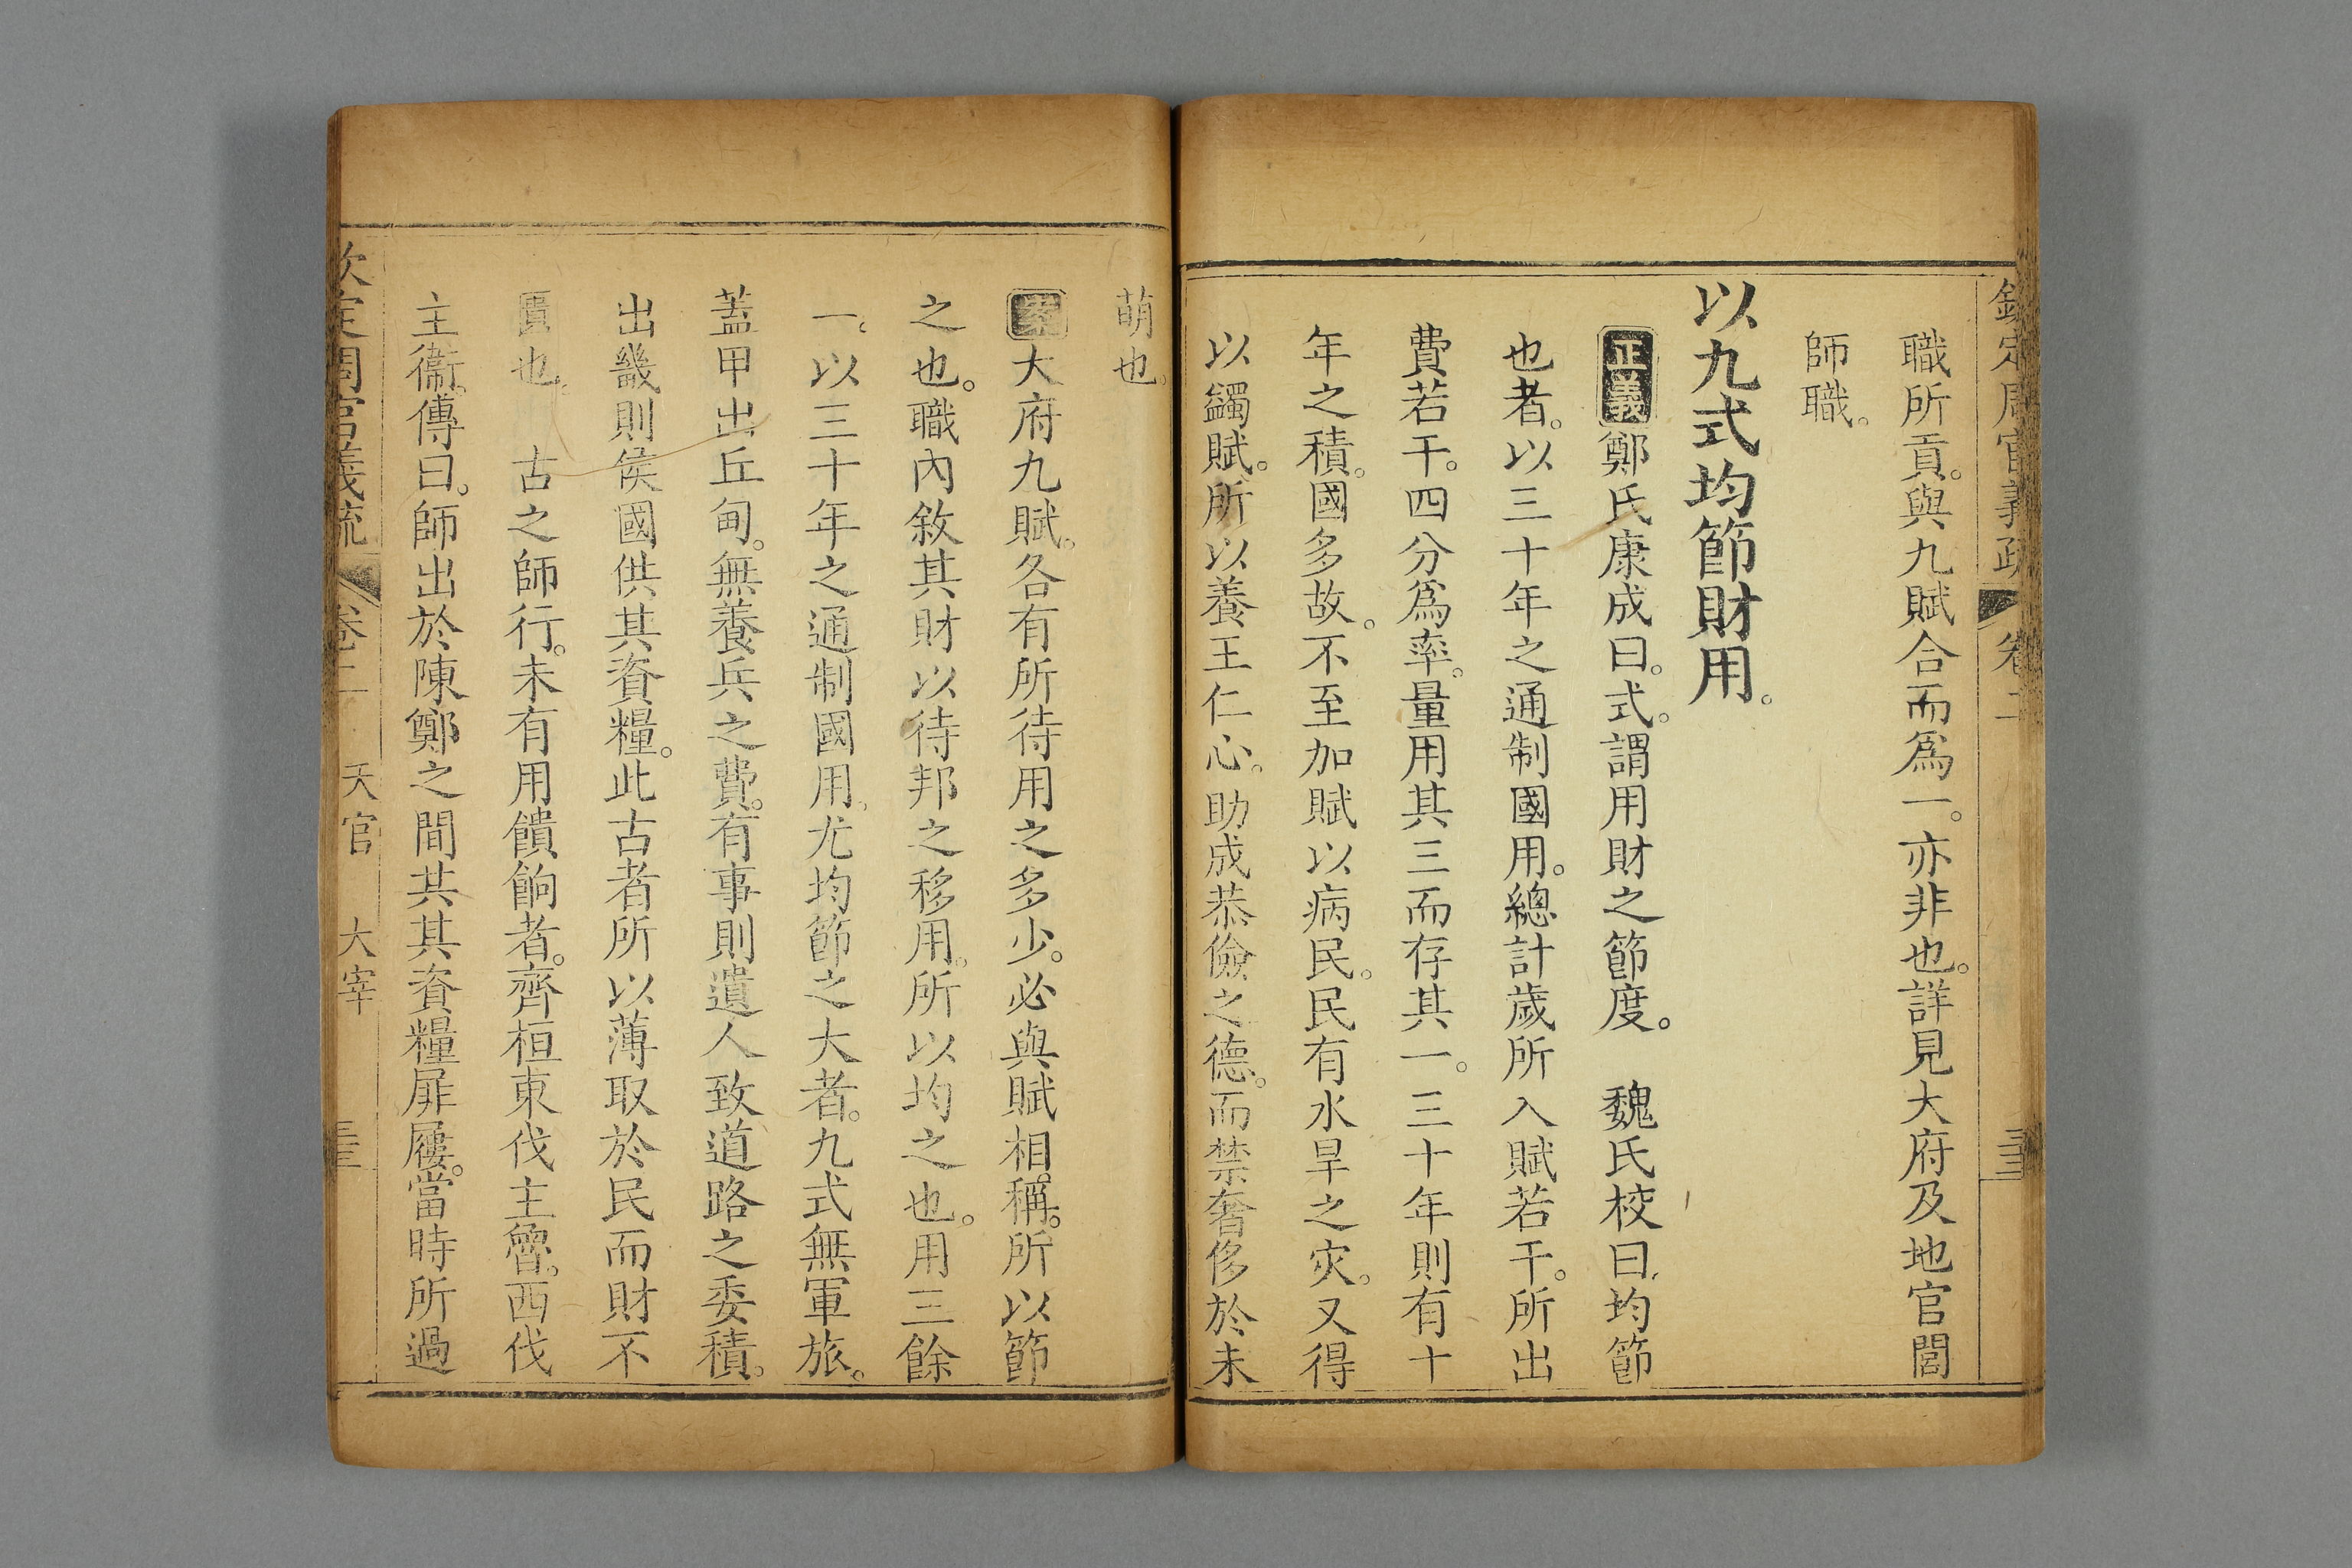 欽定周官義疏 卷二
職所貢。與九賦合而爲一。亦非也。詳見大府及地官閭
師職。
以九式均節財用。
正義鄭氏康成曰。式。謂用財之節度。 魏氏校曰。均節
也者。以三十年之通制國用。總計歲所入賦若干。所出
費若干。四分爲率。量用其三而存其一。三十年則有十
年之積。國多故。不至加賦以病民。民有水旱之灾。又得
以蠲賦。所以養王仁心。助成恭儉之德。而禁奢侈於未
萌也。
案大府九賦。各有所待用之多少。必與賦相稱。所以節
之也。職內敘其財以待邦之移用。所以均之也。用三餘
一。以三十年之通制國用。尤均節之大者。九式無軍旅。
蓋甲出丘甸。無養兵之費。有事則遺人致道路之委積。
出畿則侯國供其資糧。此古者所以薄取於民而財不
匱也。 古之師行。未有用饋餉者。齊桓東伐主魯。西伐
主衞。傳曰。師出於陳鄭之間共其資糧屝屨。當時所過
欽定周官義疏 卷二 天官 大宰